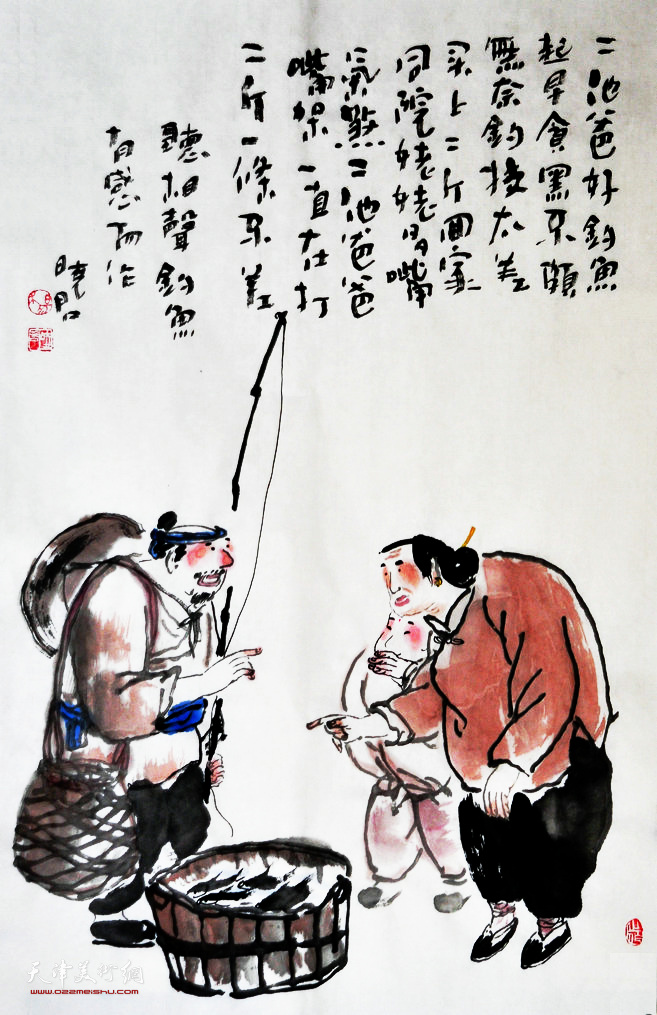 二他爸好釣魚
起早貪黑不頋
無奈釣技太差
买上二斤回家
同院姥姥多嘴
氣煞二他爸爸
嘴架一直在打
二斤一條不差
聽相聲釣魚
有感而作
曉君
天津美术網
www.022meishu.com